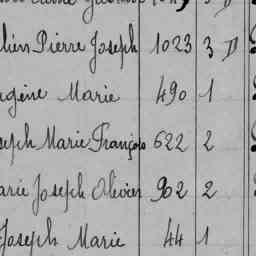 lien Pierre Joseph 1023 3 D
ugène Marie 490 1
seph Marie François 622 2
arie Joseph Olivier 902 2
Joseph Marie 44 1